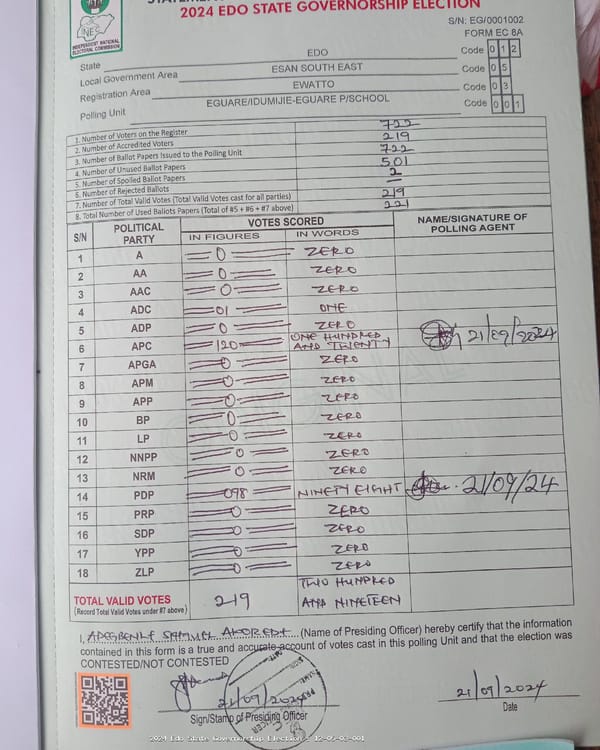 2024 EDO STATE GOVERNORSHIP ELECTION
INDEPENDENT NATIONAL ELECTORAL COMMISSION
S/N: EG/0001002
FORM EC 8A
State EDO Code 0 1 2
Local Government Area ESAN SOUTH EAST Code 0 5
Registration Area EWATTO Code 0 3
Polling Unit EGUARE/IDUMIJIE-EGUARE P/SCHOOL Code 0 0 1
1. Number of Voters on the Register 722
2. Number of Accredited Voters 219
3. Number of Ballot Papers Issued to the Polling Unit 722
4. Number of Unused Ballot Papers 501
5. Number of Spoiled Ballot Papers 2
6. Number of Rejected Ballots —
7. Number of Total Valid Votes (Total Valid Votes cast for all parties) 219
8. Total Number of Used Ballots Papers (Total of #5 + #6 + #7 above) 221
S/N POLITICAL PARTY VOTES SCORED NAME/SIGNATURE OF POLLING AGENT
IN FIGURES IN WORDS
1 A 0 ZERO
2 AA 0 ZERO
3 AAC 0 ZERO
4 ADC 01 ONE
5 ADP 0 ZERO
6 APC 120 ONE HUNDRED AND TWENTY 21/09/2024
7 APGA 0 ZERO
8 APM 0 ZERO
9 APP 0 ZERO
10 BP 0 ZERO
11 LP 0 ZERO
12 NNPP 0 ZERO
13 NRM 0 ZERO
14 PDP 098 NINETY EIGHT 21/09/24
15 PRP 0 ZERO
16 SDP 0 ZERO
17 YPP 0 ZERO
18 ZLP 0 ZERO
TOTAL VALID VOTES 219 TWO HUNDRED AND NINETEEN
(Record Total Valid Votes under #7 above)
I, (Name of Presiding Officer) hereby certify that the information
contained in this form is a true and accurate account of votes cast in this polling Unit and that the election was
CONTESTED/NOT CONTESTED
21/09/2024 21/09/2024
Sign/Stamp of Presiding Officer Date
2024 Edo State Governorship Election - 12-05-03-001